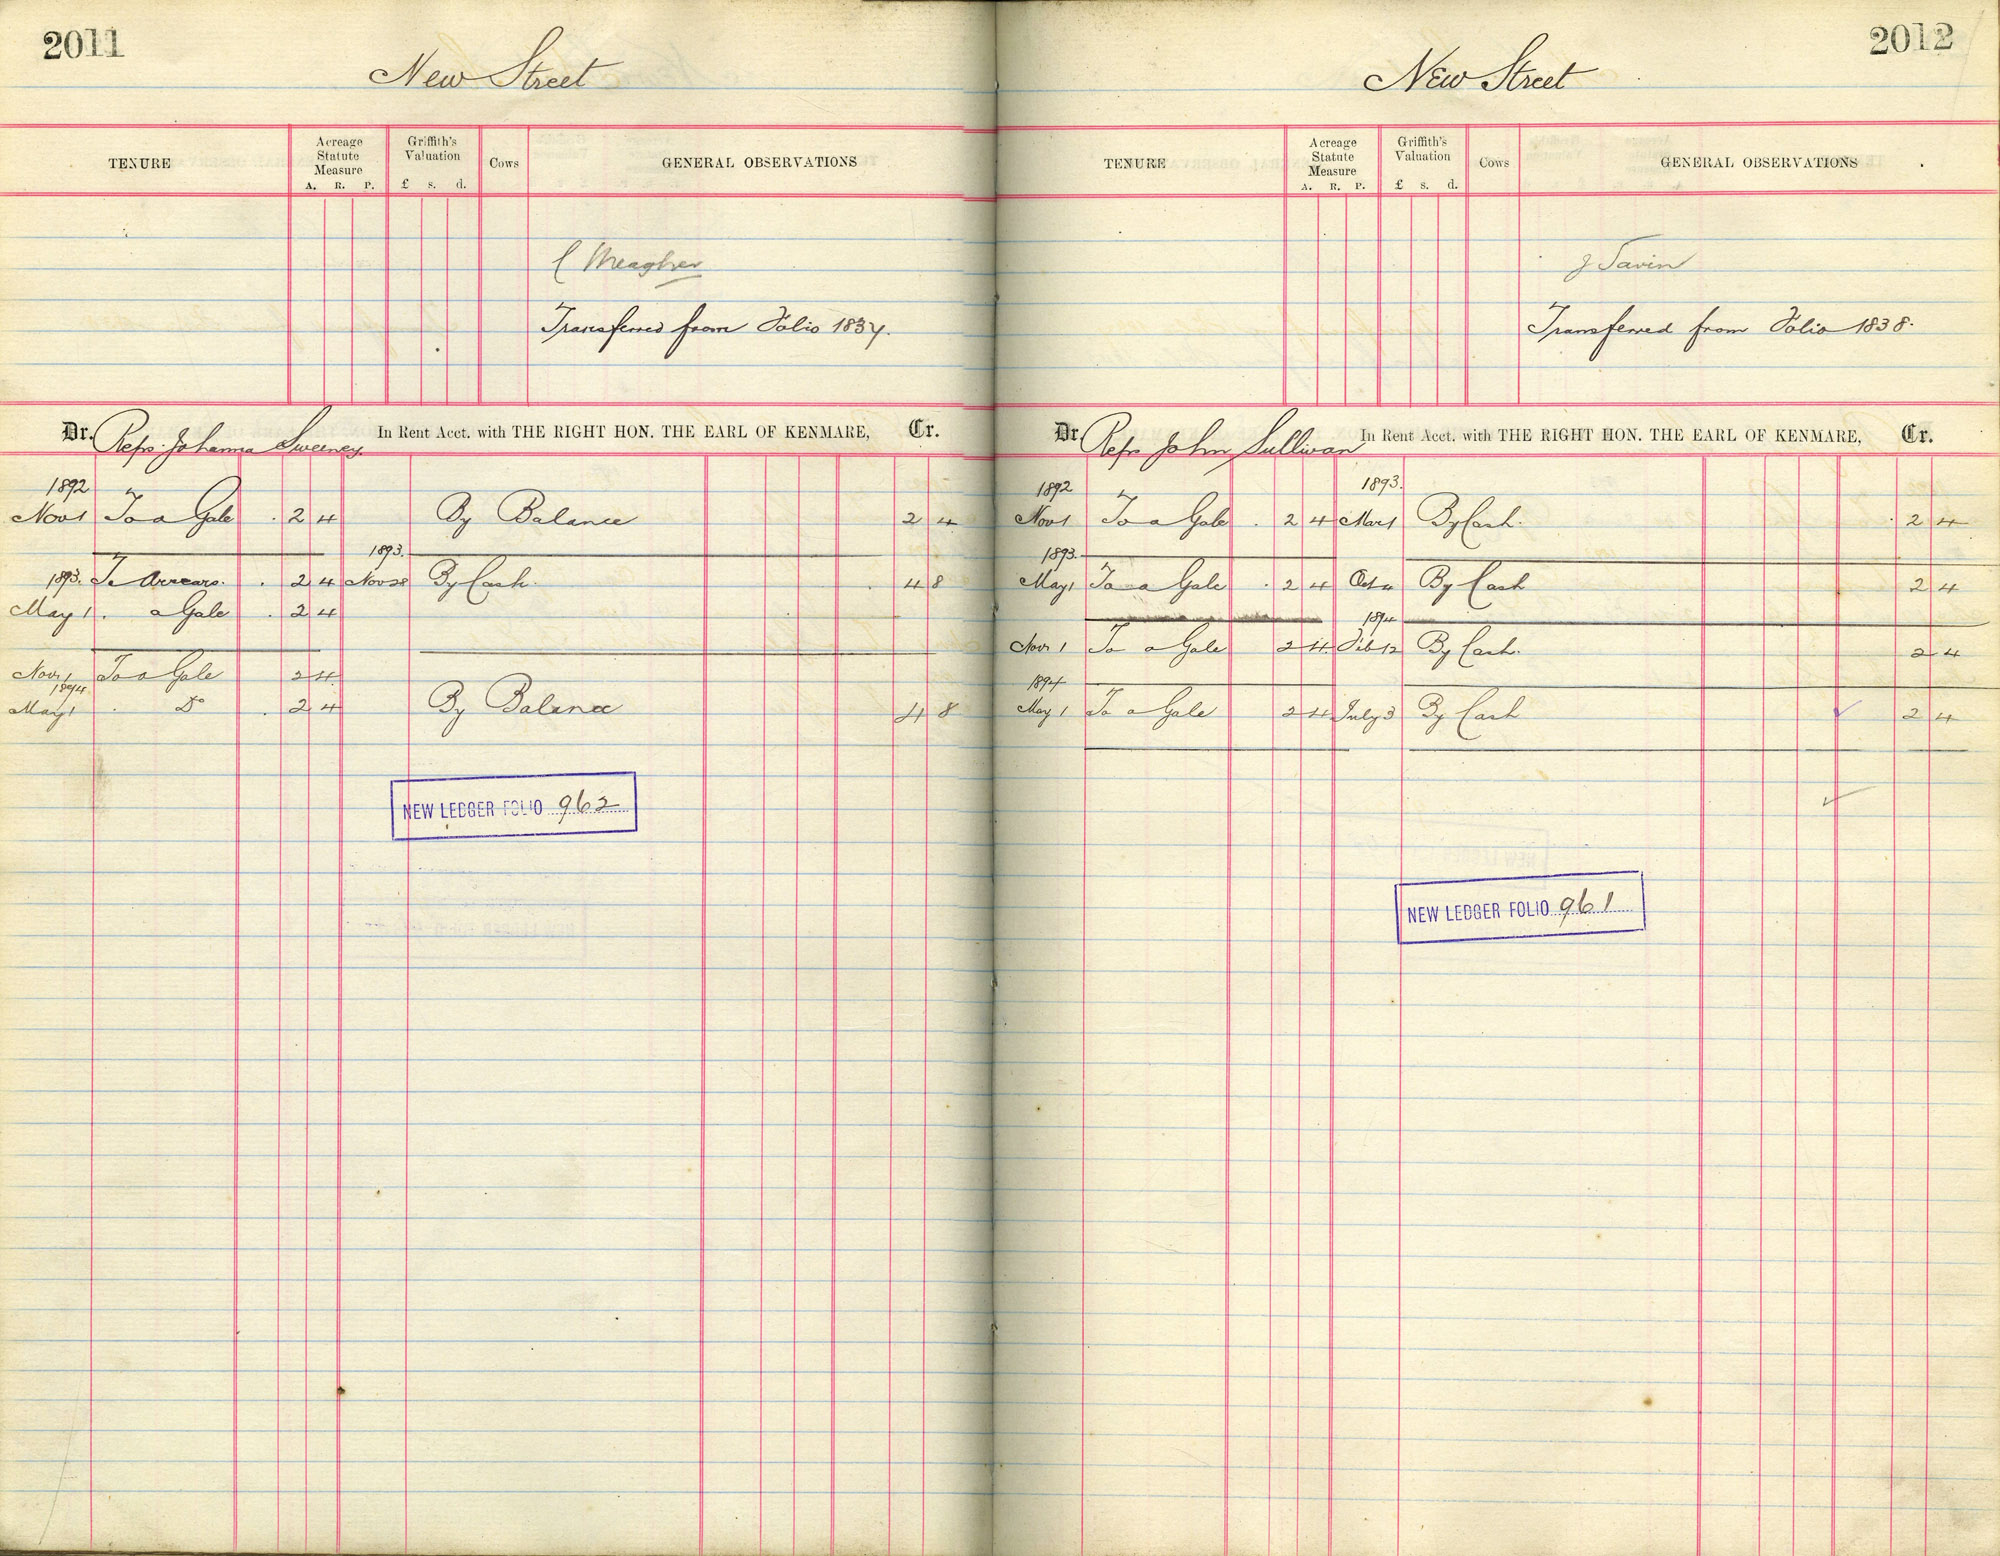 2011
New Street
TENURE
Acreage Statute Measure
A. R. P.
Griffith's Valuation
£ s. d.
Cows
GENERAL OBSERVATIONS
Meagher
Transferred from Folio 1837.
Dr. Reps Johanna Sweeney In Rent Acct. with THE RIGHT HON. THE EARL OF KENMARE, Cr.
1892
Nov 1 To a Gale . 2 4 By Balance 2 4
1893.
1893. To Arrears . 2 4 Nov 28 By Cash. 4 8
May 1 . a Gale . 2 4
Nov 1 To a Gale 2 4
1894
May 1 . Do . 2 4 By Balance 4 8
NEW LEDGER FOLIO 962
2012
New Street
TENURE
Acreage Statute Measure
A. R. P.
Griffith's Valuation
£ s. d.
Cows
GENERAL OBSERVATIONS
J Savin
Transferred from Folio 1838.
Dr. Reps John Sullivan In Rent Acct. with THE RIGHT HON. THE EARL OF KENMARE, Cr.
1892 1893.
Nov 1 To a Gale . 2 4 Mar 1 By Cash. 2 4
1893.
May 1 To a Gale . 2 4 Oct 4 By Cash 2 4
1894
Nov 1 To a Gale 2 4 Feb 12 By Cash. 2 4
1894
May 1 To a Gale 2 4 July 3 By Cash 2 4
NEW LEDGER FOLIO 961